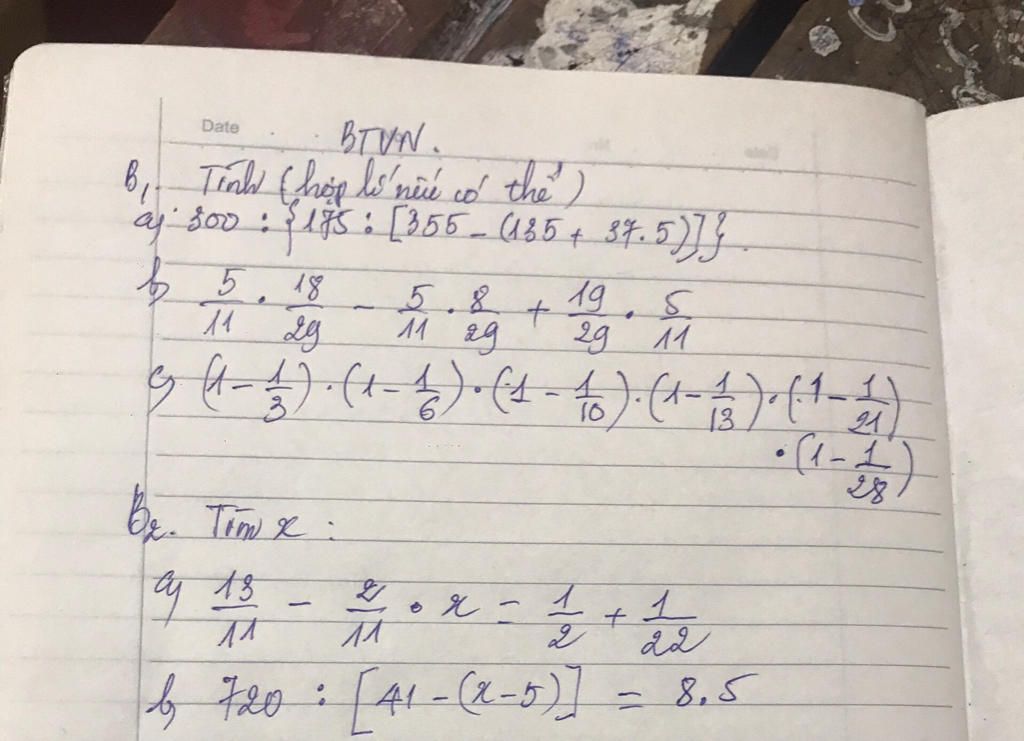 Date
BTVN.
B1. Tính (hợp lí nếu có thể)
a) 300 : {175 : [355 - (135 + 37.5)]}.
b) 5/11 . 18/29 - 5/11 . 8/29 + 19/29 . 5/11
c) (1 - 1/3) . (1 - 1/6) . (1 - 1/10) . (1 - 1/13) . (1 - 1/21)
. (1 - 1/28)
B2. Tìm x :
a) 13/11 - 2/11 . x = 1/2 + 1/22
b) 720 : [41 - (x - 5)] = 8.5